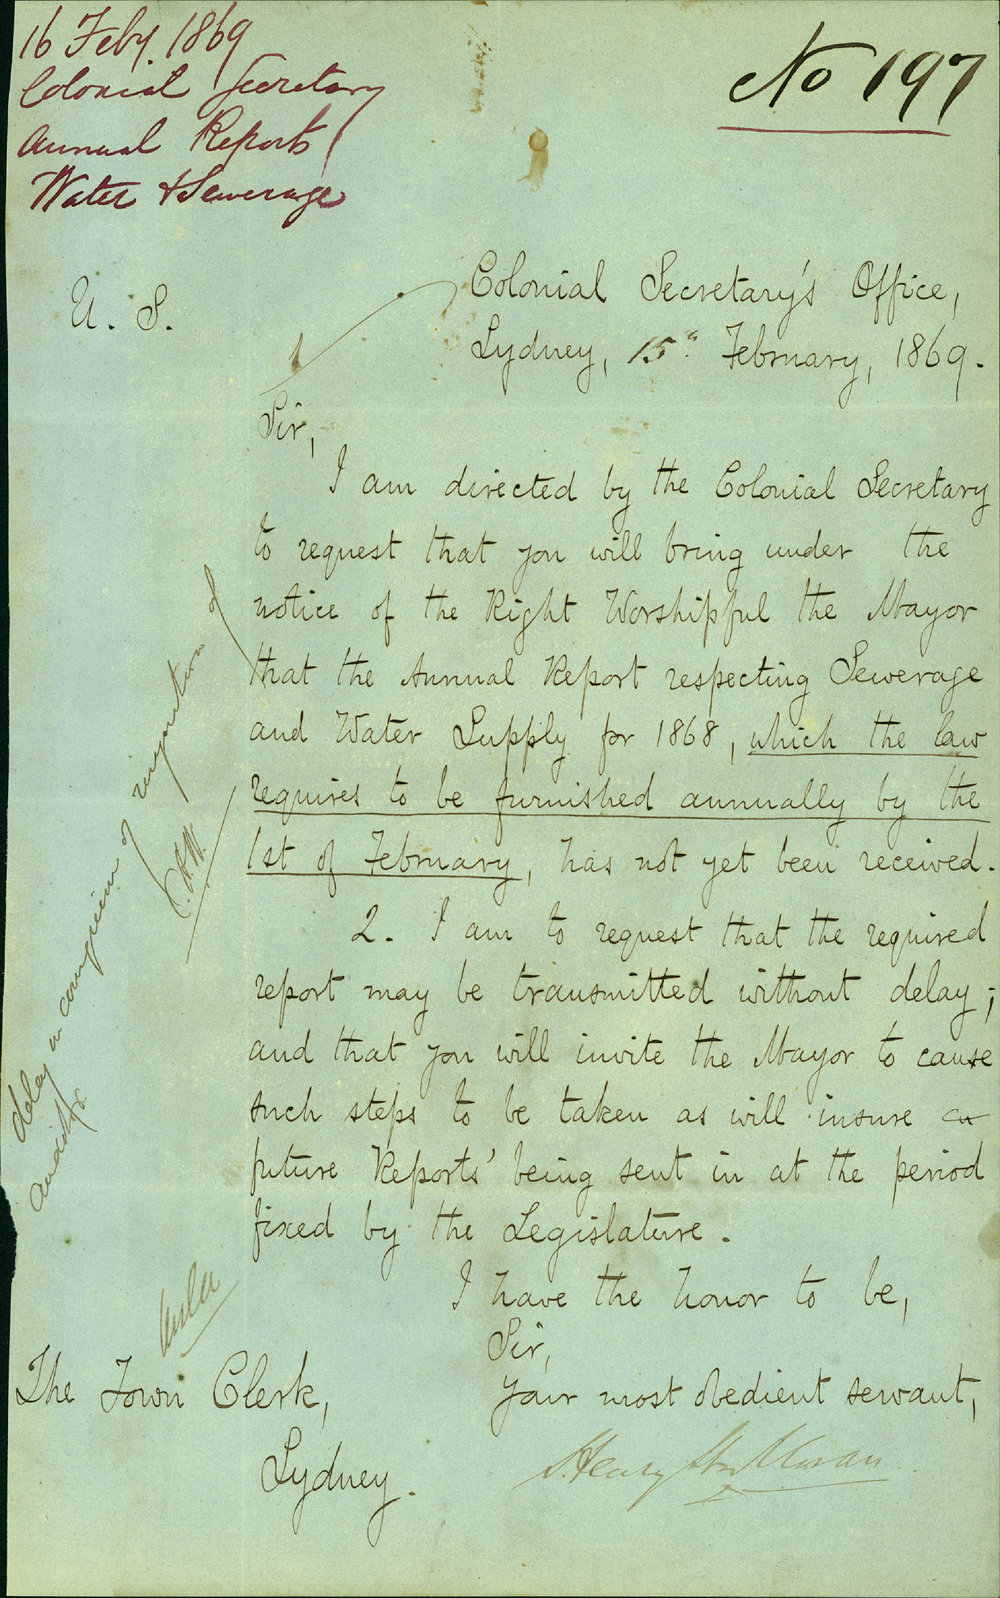 16 Feby. 1869
Colonial Secretary
Annual Reports
Water & Sewerage
No 197
U. S.
Colonial Secretary's Office,
Sydney, 15" February, 1869.
Sir,
I am directed by the Colonial Secretary
to request that you will bring under the
notice of the Right Worshipful the Mayor
that the Annual Report respecting Sewerage
and Water Supply for 1868, which the law
requires to be furnished annually by the
1st of February, has not yet been received.
2. I am to request that the required
report may be transmitted without delay;
and that you will invite the Mayor to cause
such steps to be taken as will insure
future Reports' being sent in at the period
fixed by the Legislature.
I have the honor to be,
Sir,
Your most obedient servant,
Henry
The Town Clerk,
Sydney.
delay in of